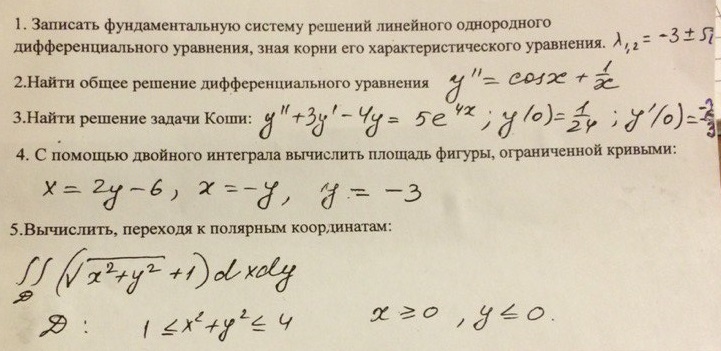 1. Записать фундаментальную систему решений линейного однородного
дифференциального уравнения, зная корни его характеристического уравнения. λ₁,₂ = -3 ± 5i
2.Найти общее решение дифференциального уравнения y'' = cosx + 1/x
3.Найти решение задачи Коши: y'' + 3y' - 4y = 5e^{4x} ; y(0) = 1/24 ; y'(0) =
4. С помощью двойного интеграла вычислить площадь фигуры, ограниченной кривыми:
x = 2y - 6, x = -y, y = -3
5.Вычислить, переходя к полярным координатам:
∬_D (√(x²+y²) + 1) dxdy
D : 1 ≤ x² + y² ≤ 4 x ≥ 0 , y ≤ 0.